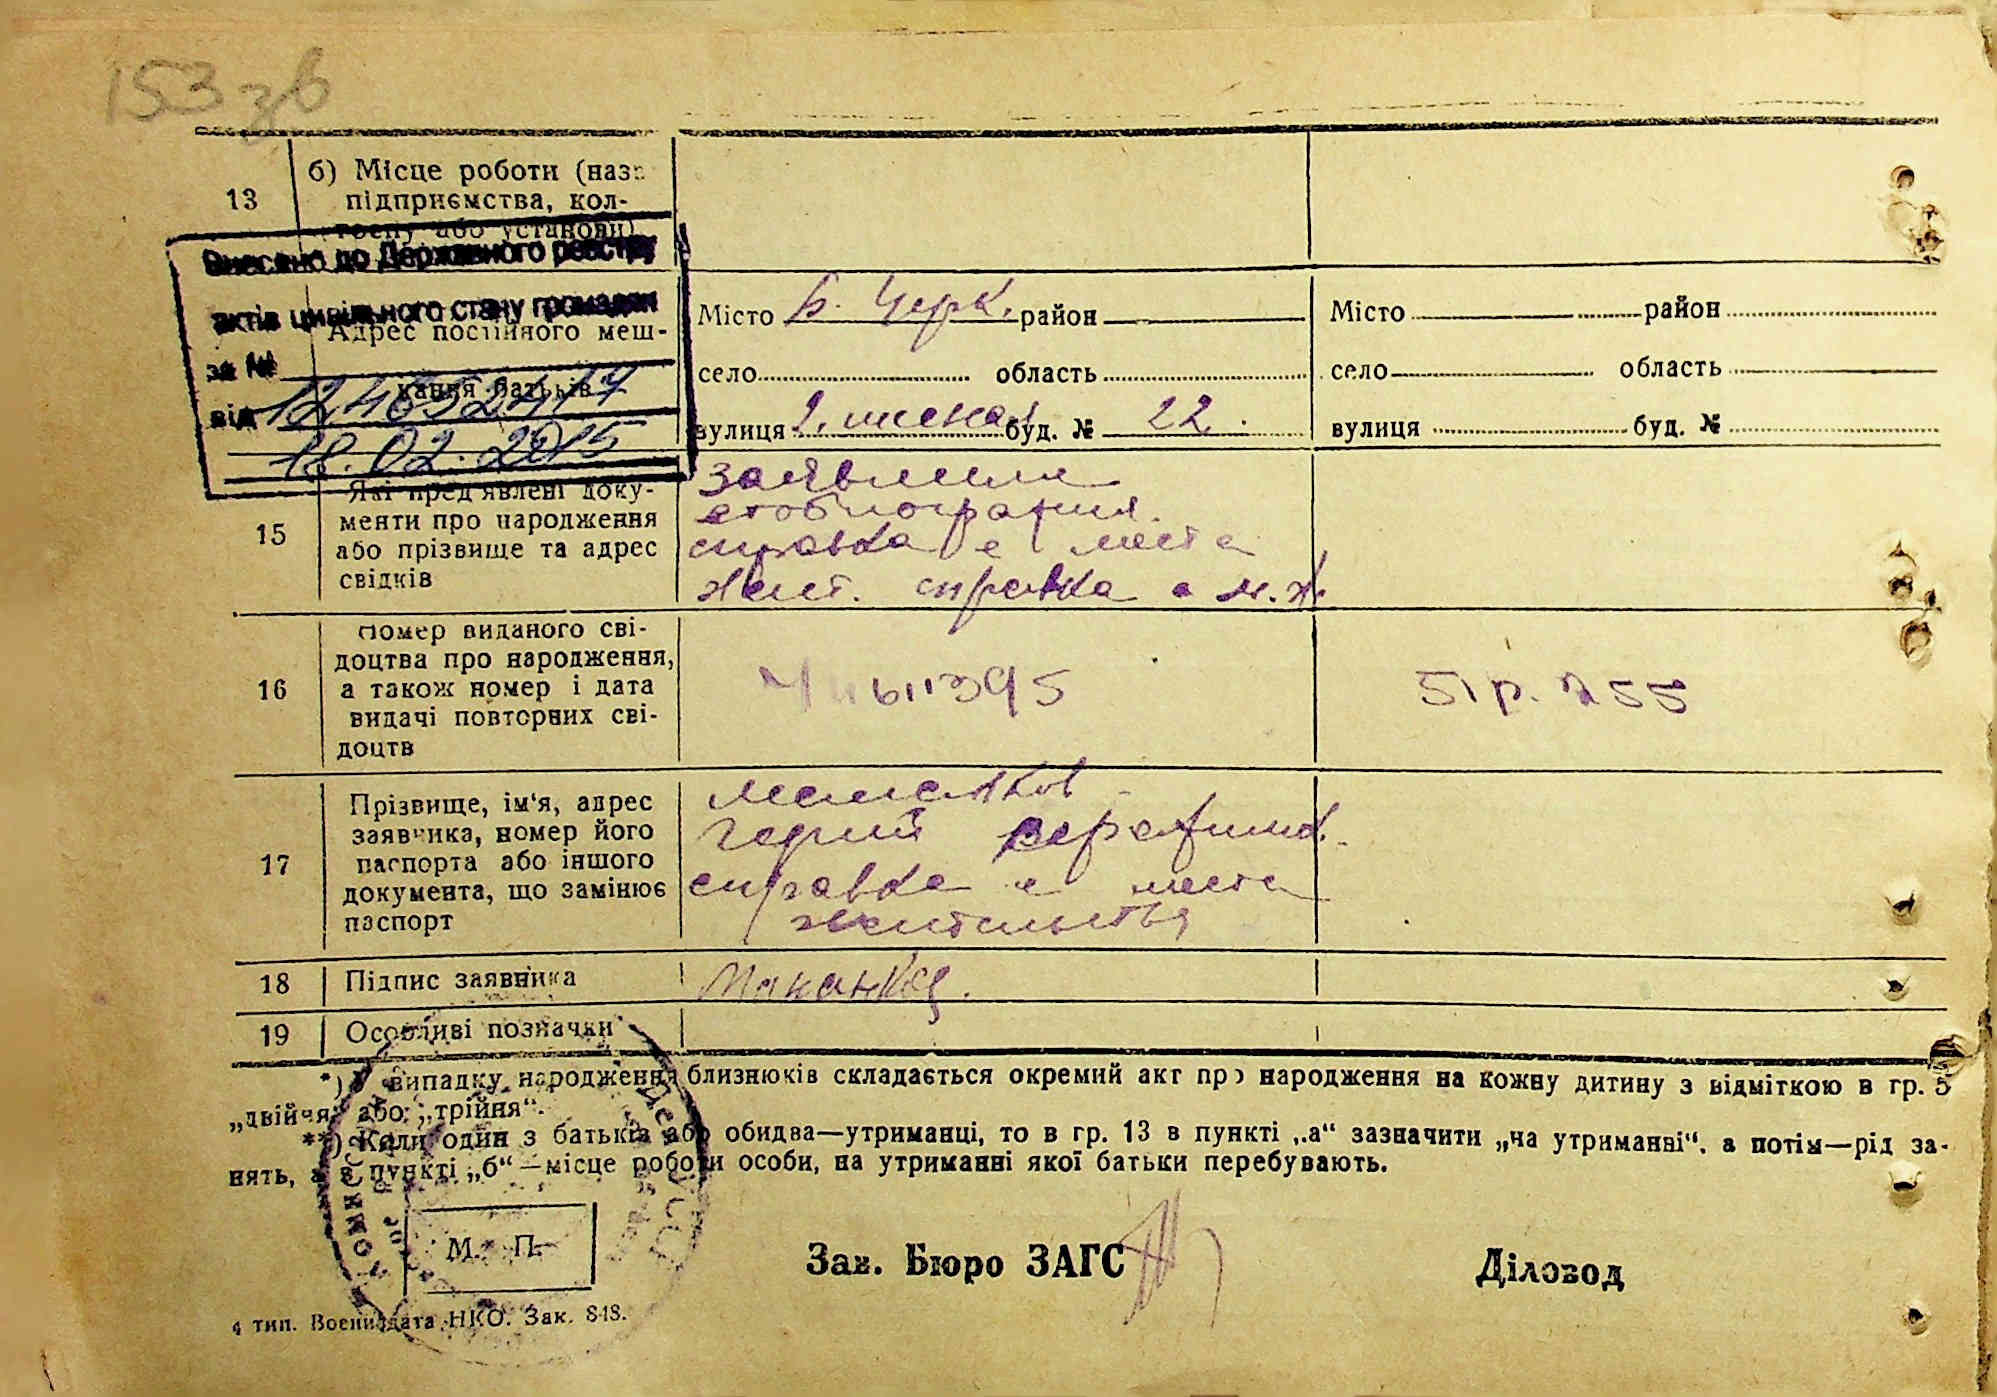 153 зв
13
б) Місце роботи (назв
підприємства, кол-
госпу або установи)
Внесено до Державного реєстру
актів цивільного стану громадян
за № 12465247
від 18.02.2015
Адрес постійного меш-
кання батьків
Місто Б. Черк. район
село область
вулиця буд. № 22.
Місто район
село область
вулиця буд. №
15
Які пред'явлені доку-
менти про народження
або прізвище та адрес
свідків
заявление
справка с места
жит. справка м.ж.
16
Номер виданого сві-
доцтва про народження,
а також номер і дата
видачі повторних сві-
доцтв
стр. 255
17
Прізвище, ім'я, адрес
заявника, номер його
паспорта або іншого
документа, що замінює
паспорт
справка с места
жительства
18
Підпис заявника
19
Особливі позначки
*) У випадку народження близнюків складається окремий акт про народження на кожну дитину з відміткою в гр. 5
„двійня“ або „трійня“.
**) Коли один з батьків або обидва—утриманці, то в гр. 13 в пункті „а“ зазначити „на утриманні“, а потім—рід за-
нять, а в пункті „б“—місце роботи особи, на утриманні якої батьки перебувають.
М. П.
Зав. Бюро ЗАГС
Діловод
4 тип. Воениздата НКО. Зак. 848.